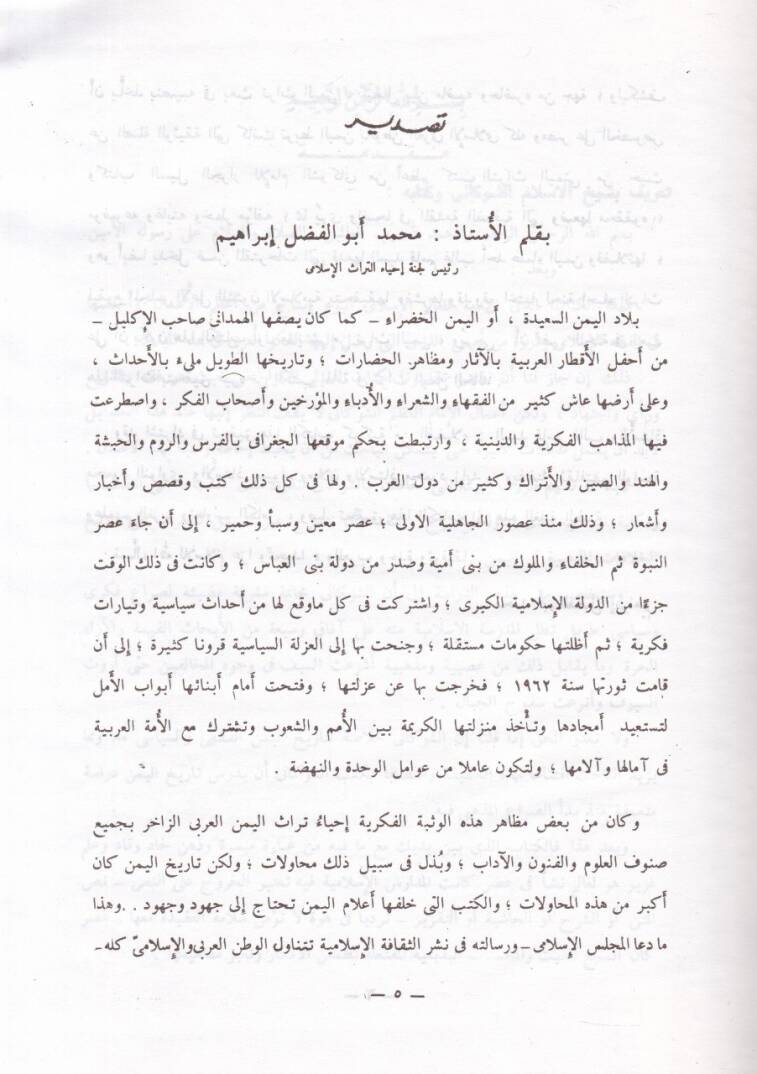 تصدير
بقلم الأُستاذ : محمد أبو الفضل إبراهيم
رئيس لجنة إحياء التراث الإسلامى
بلاد اليمن السعيدة ، أَو اليمن الخضراءِ – كما كان يصفها الهمدانى صاحب الإكليل –
من أَحفل الأَقطار العربية بالآثار ومظاهر الحضارات ؛ وتاريخها الطويل ملىء بالأَحداث ،
وعلى أَرضها عاش كثير من الفقهاءِ والشعراءِ والأُدباءِ والمؤرخين وأَصحاب الفكر ، واصطرعت
فيها المذاهب الفكرية والدينية ، وارتبطت بحكم موقعها الجغرافى بالفرس والروم والحبشة
والهند والصين والأَتراك وكثير من دول الغرب . ولها فى كل ذلك كتب وقصص وأَخبار
وأَشعار ؛ وذلك منذ عصور الجاهلية الاولى ؛ عصر معين وسبأ وحمير ، إلى أَن جاءَ عصر
النبوة ثم الخلفاءِ والملوك من بنى أمية وصدر من دولة بنى العباس ؛ وكانت فى ذلك الوقت
جزءًا من الدولة الإسلامية الكبرى ؛ واشتركت فى كل ماوقع لها من أَحداث سياسية وتيارات
فكرية ؛ ثم أَظلتها حكومات مستقلة ؛ وجنحت بها إلى العزلة السياسية قرونا كثيرة ؛ إلى أَن
قامت ثورتها سنة ١٩٦٢ ؛ فخرجت بها عن عزلتها ؛ وفتحت أَمام أَبنائها أَبواب الأَمل
لتستعيد أَمجادها وتأْخذ منزلتها الكريمة بين الأُمم والشعوب وتشترك مع الأُمة العربية
فى آمالها وآلامها ؛ ولتكون عاملا من عوامل الوحدة والنهضة .
وكان من بعض مظاهر هذه الوثبة الفكرية إحياءُ تراث اليمن العربى الزاخر بجميع
صنوف العلوم والفنون والآداب ؛ وبُذل فى سبيل ذلك محاولات ؛ ولكن تاريخ اليمن كان
أكبر من هذه المحاولات ؛ والكتب التى خلفها أَعلام اليمن تحتاج إلى جهود وجهود . . وهذا
ما دعا المجلس الإسلامى – ورسالته فى نشر الثقافة الإسلامية تتناول الوطن العربى والإسلامىّ كله –
– ٥ –